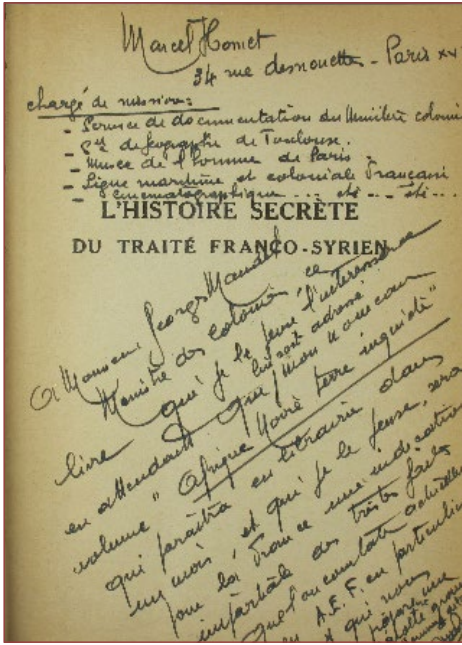 Marcel Homet
34 rue desnouettes - Paris XV
chargé de missions:
- Service de documentation du Ministère coloni
- Sté de Géographie de Toulouse.
- Musée de l'homme de Paris.
- Ligue maritime et coloniale Française
- Cinématographique ... etc ... etc ...
L'HISTOIRE SECRÈTE
DU TRAITÉ FRANCO-SYRIEN
A Monsieur Georges Mandel
Ministre des colonies, ce
livre qui je le pense l'intéressera
lui est adressé
en attendant que mon nouveau
volume "Afrique Noire terre inquiète"
qui paraîtra en librairie dans
un mois, et qui je le pense, sera
pour la France une indication
impartiale des tristes faits
que l'on constate actuellem
en A.E.F. en particulier
et qui nous
prépare une